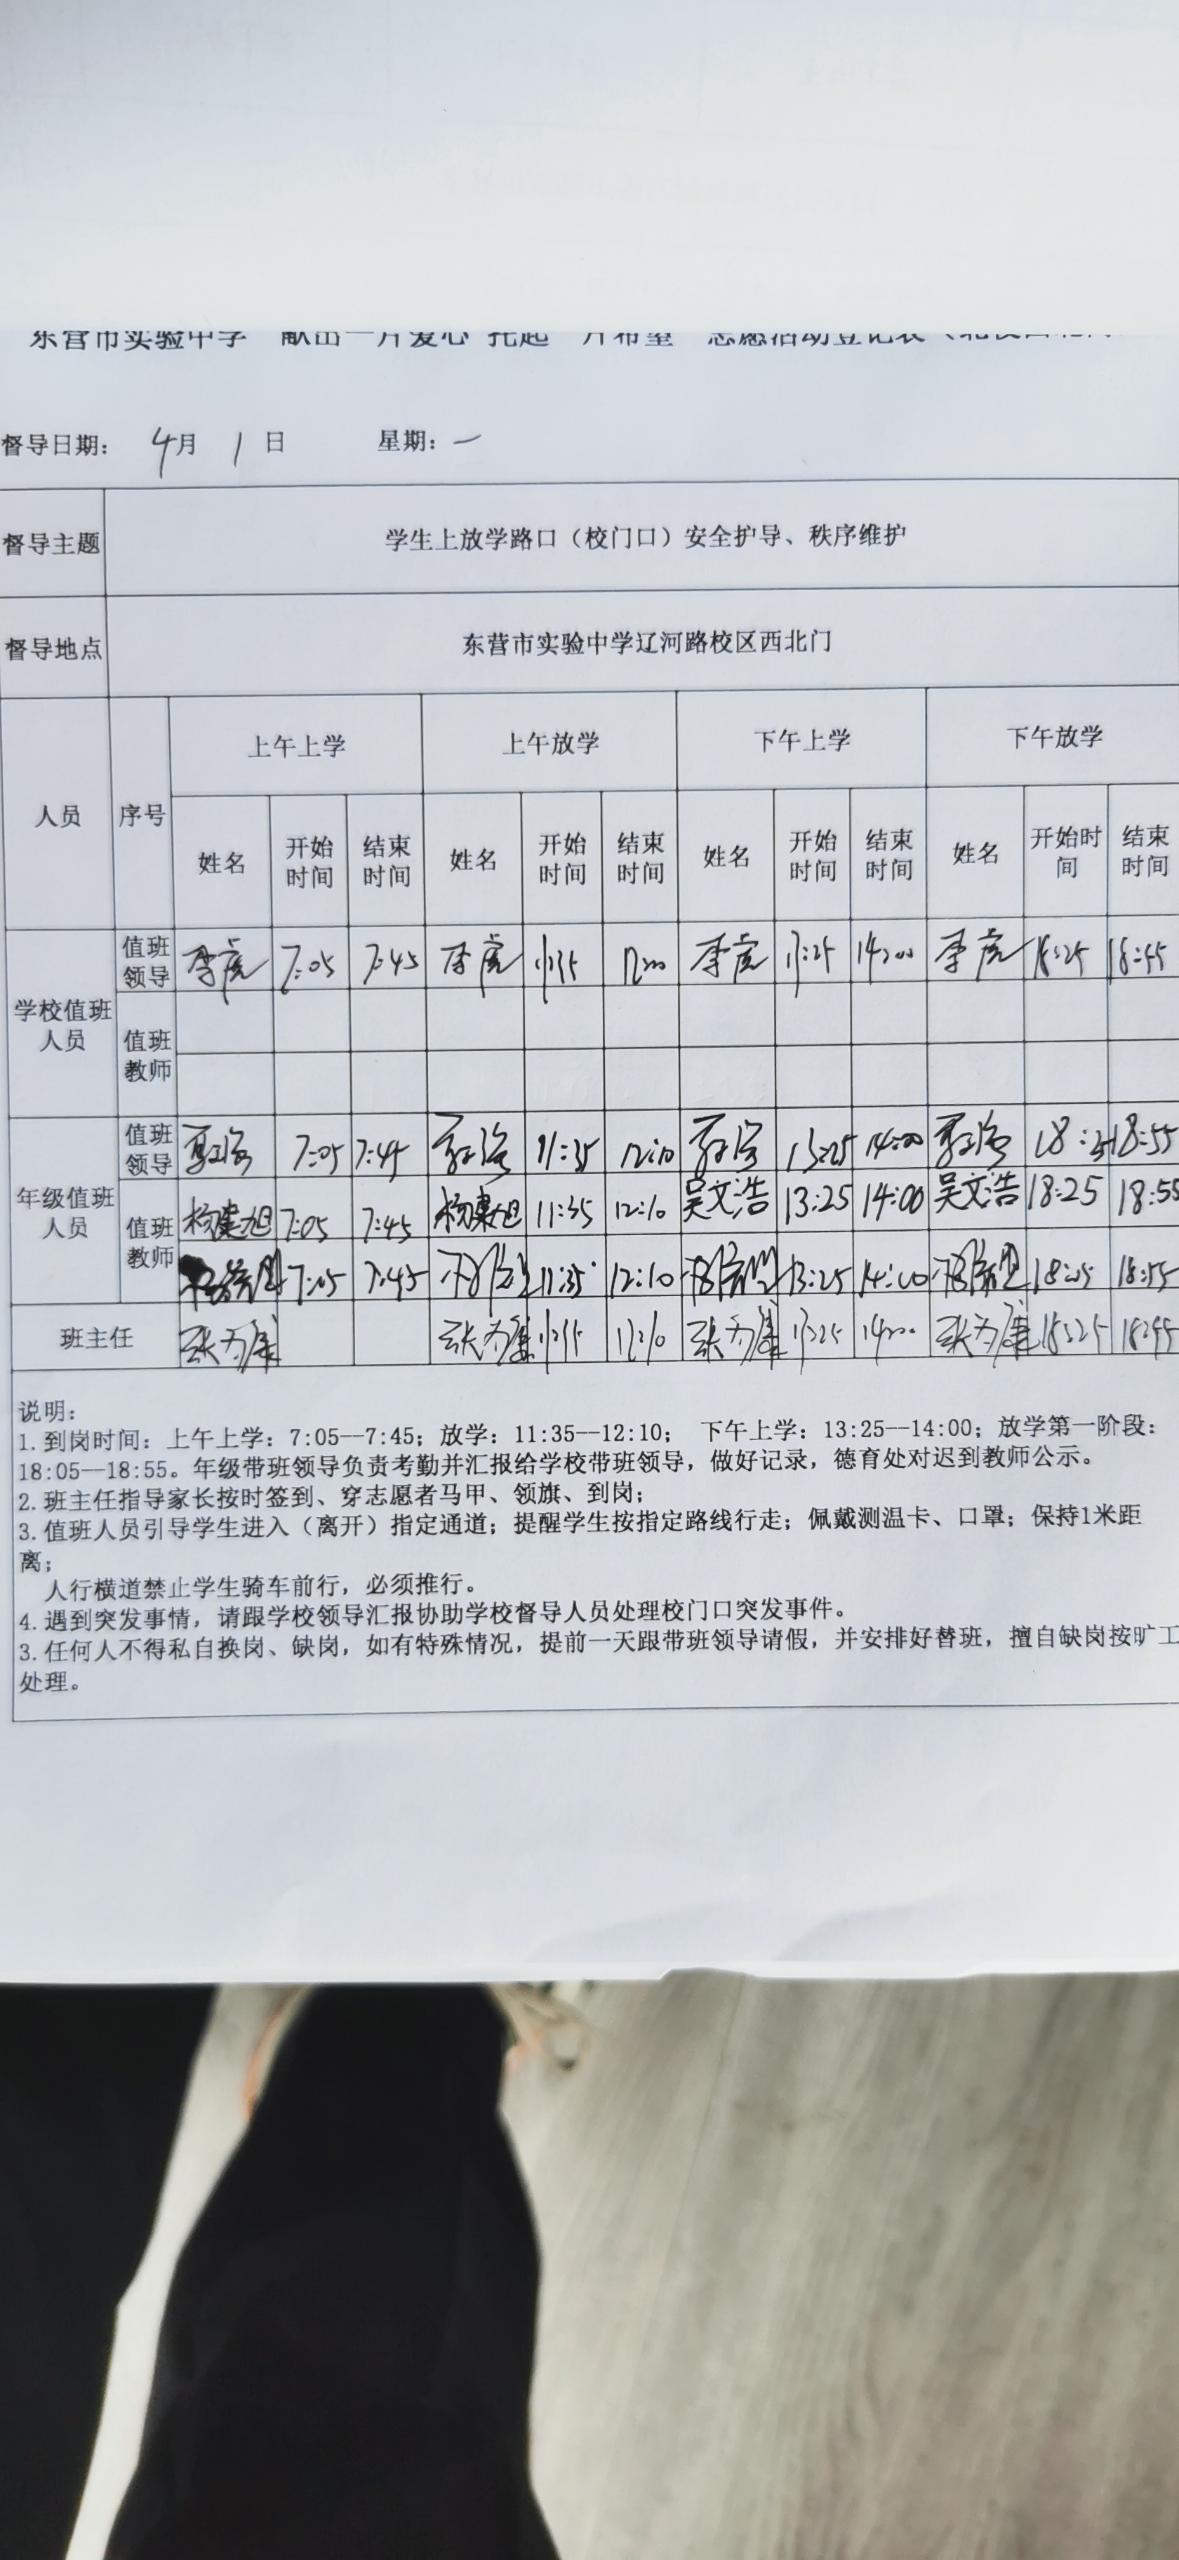 东营市实验中学 献出一片爱心 托起一片希望 志愿活动登记表
督导日期： 4月 1 日 星期：一
督导主题 学生上放学路口（校门口）安全护导、秩序维护
督导地点 东营市实验中学辽河路校区西北门
人员 序号 上午上学 上午放学 下午上学 下午放学
姓名 开始时间 结束时间 姓名 开始时间 结束时间 姓名 开始时间 结束时间 姓名 开始时间 结束时间
学校值班人员 值班领导 李虎 7:05 7:45 李虎 李虎 14:00 李虎 18:25 18:55
值班教师
年级值班人员 值班领导 7:05 7:45 11:35 12:10 13:25 14:00 18:55
值班教师 杨建旭 7:05 7:45 杨建旭 11:35 12:10 吴文浩 13:25 14:00 吴文浩 18:25 18:55
7:05 7:45 11:35 12:10 13:25 14:00 18:25 18:55
班主任 张为康 张为康 张为康 14:00 张为康 18:25 18:55
说明：
1.到岗时间：上午上学：7:05--7:45；放学：11:35--12:10； 下午上学：13:25--14:00；放学第一阶段：
18:05--18:55。年级带班领导负责考勤并汇报给学校带班领导，做好记录，德育处对迟到教师公示。
2.班主任指导家长按时签到、穿志愿者马甲、领旗、到岗；
3.值班人员引导学生进入（离开）指定通道；提醒学生按指定路线行走；佩戴测温卡、口罩；保持1米距
离；
人行横道禁止学生骑车前行，必须推行。
4.遇到突发事情，请跟学校领导汇报协助学校督导人员处理校门口突发事件。
3.任何人不得私自换岗、缺岗，如有特殊情况，提前一天跟带班领导请假，并安排好替班，擅自缺岗按旷工
处理。